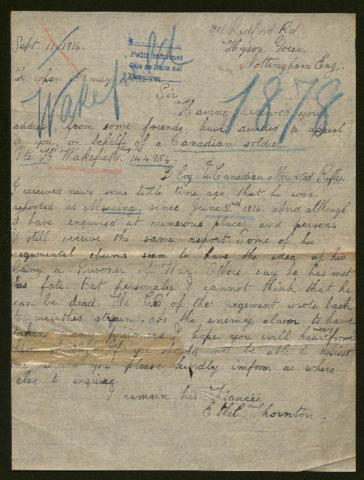 Radford Rd
Hyson Green
Nottingham Eng.
Sept. 11/1916.
Pedir informes
Wakefield
1878
Sir
Having received your
address from some friends, have decided to appeal
to you, on behalf of a Canadian soldier
Pte H. Wakefield. 144956.
Coy 4 Canadian Mounted Rifles
I received news some little time ago that he was
reported as Missing since June 2nd 1916. And although
I have enquired at numerous places and persons
I still receive the same report. Some of his
regimental chums seem to have the idea of his
being a Prisoner of War. Others say he has met
his fate. But personally I cannot think that he
can be dead. The C.O. of the regiment wrote back
in strain, as the enemy claim to have
taken prisoners. I hope you will hear news from
If you should not be able to assist
me would you please kindly inform as where
else to inquire.
I remain his Fiancée
Ethel Thornton.